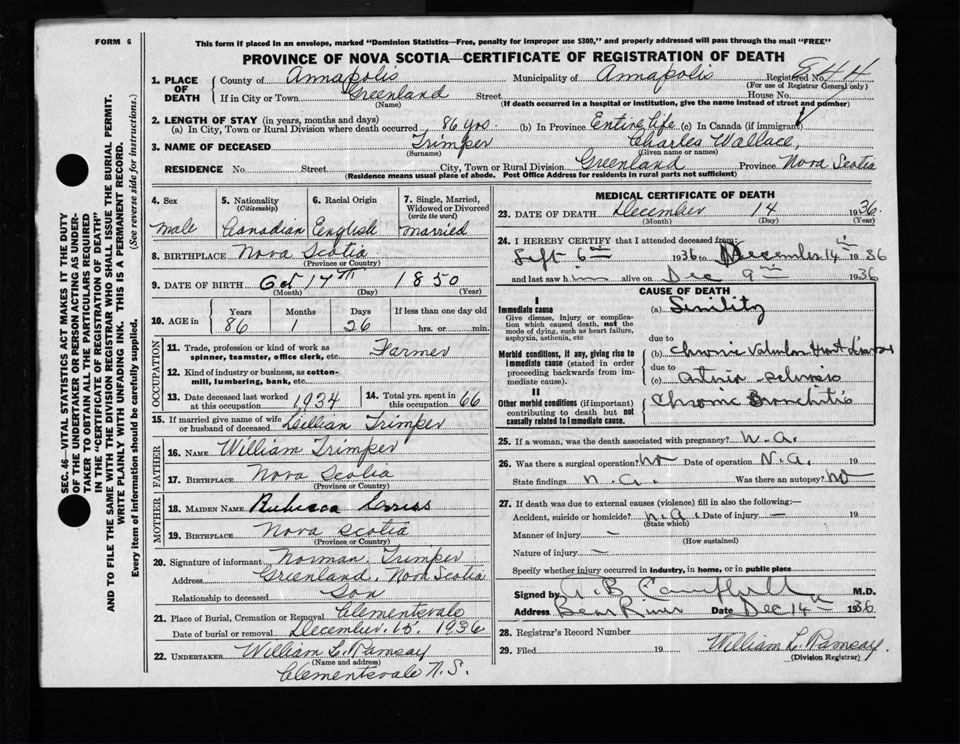 FORM 6
This form if placed in an envelope, marked "Dominion Statistics—Free, penalty for improper use $300," and properly addressed will pass through the mail "FREE"
PROVINCE OF NOVA SCOTIA—CERTIFICATE OF REGISTRATION OF DEATH
1. PLACE OF DEATH County of Annapolis Municipality of Annapolis Registered No. 844
(For use of Registrar General only)
If in City or Town Greenland Street House No.
(Name) (If death occurred in a hospital or institution, give the name instead of street and number)
2. LENGTH OF STAY (in years, months and days)
(a) In City, Town or Rural Division where death occurred 86 yrs. (b) In Province Entire life (c) In Canada (if immigrant)
3. NAME OF DECEASED Trimper Charles Wallace,
(Surname) (Given name or names)
RESIDENCE No. Street City, Town or Rural Division Greenland Province Nova Scotia
(Residence means usual place of abode. Post Office Address for residents in rural parts not sufficient)
SEC. 46—VITAL STATISTICS ACT MAKES IT THE DUTY
OF THE UNDERTAKER OR PERSON ACTING AS UNDER-
TAKER TO OBTAIN ALL THE PARTICULARS REQUIRED
IN THE "CERTIFICATE OF REGISTRATION OF DEATH"
AND TO FILE THE SAME WITH THE DIVISION REGISTRAR WHO SHALL ISSUE THE BURIAL PERMIT.
WRITE PLAINLY WITH UNFADING INK. THIS IS A PERMANENT RECORD.
Every item of information should be carefully supplied. (See reverse side for instructions.)
4. Sex
male
5. Nationality
(Citizenship)
Canadian
6. Racial Origin
English
7. Single, Married,
Widowed or Divorced
(write the word)
married
8. BIRTHPLACE Nova Scotia
(Province or Country)
9. DATE OF BIRTH Oct 17th 1850
(Month) (Day) (Year)
10. AGE in Years Months Days If less than one day old
86 1 26 hrs. or min.
OCCUPATION
11. Trade, profession or kind of work as
spinner, teamster, office clerk, etc. Farmer
12. Kind of industry or business, as cotton-
mill, lumbering, bank, etc.
13. Date deceased last worked
at this occupation 1934
14. Total yrs. spent in
this occupation 66
15. If married give name of wife
or husband of deceased Lillian Trimper
FATHER
16. NAME William Trimper
17. BIRTHPLACE Nova Scotia
(Province or Country)
MOTHER
18. MAIDEN NAME
19. BIRTHPLACE Nova Scotia
(Province or Country)
20. Signature of informant Norman Trimper
Address Greenland, Nova Scotia
Relationship to deceased Son
21. Place of Burial, Cremation or Removal Clementsvale
Date of burial or removal December. 15. 1936
22. UNDERTAKER William L. Ramsay
(Name and address)
Clementsvale N.S.
MEDICAL CERTIFICATE OF DEATH
23. DATE OF DEATH December 14 1936
(Month) (Day) (Year)
24. I HEREBY CERTIFY that I attended deceased from:
Sept 6th 1936 to December 14th 1936
and last saw him alive on Dec 9th 1936
CAUSE OF DEATH
I
Immediate cause (a) Senility
Give disease, injury or complica-
tion which caused death, not the
mode of dying, such as heart failure,
asphyxia, asthenia, etc
due to
Morbid conditions, if any, giving rise to
immediate cause (stated in order
proceeding backwards from im-
mediate cause).
(b) Chronic Valvular Heart Disease
due to
(c) Arterio-sclerosis
II
Other morbid conditions (if important)
contributing to death but not
causally related to immediate cause.
Chronic Bronchitis
25. If a woman, was the death associated with pregnancy? N.A.
26. Was there a surgical operation? No Date of operation N.A. 19
State findings N.A. Was there an autopsy? No
27. If death was due to external causes (violence) fill in also the following:—
Accident, suicide or homicide? N.A. Date of injury — 19
(State which)
Manner of injury —
(How sustained)
Nature of injury —
Specify whether injury occurred in industry, in home, or in public place
Signed by B Campbell M.D.
Address Bear River Date Dec 14th 1936
28. Registrar's Record Number
29. Filed 19 William L. Ramsay.
(Division Registrar)